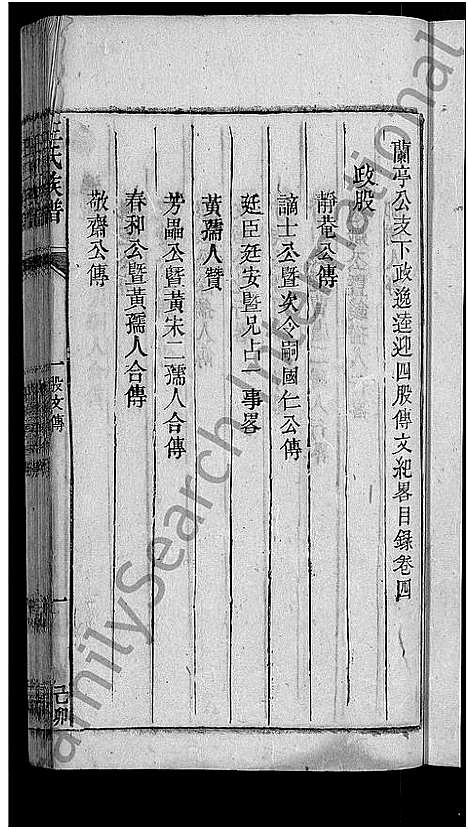 蘭亭公支下政逸逵迎四股傳文紀畧目錄卷四
政股
靜菴公傳
謫士公暨次令嗣國仁公傳
廷臣廷安暨兄占一事畧
黃孺人贊
芳畾公暨黃宋二孺人合傳
春和公暨黃孺人合傳
敬齋公傳
氏族譜
一股文傳
一
己卯
FamilySearch International